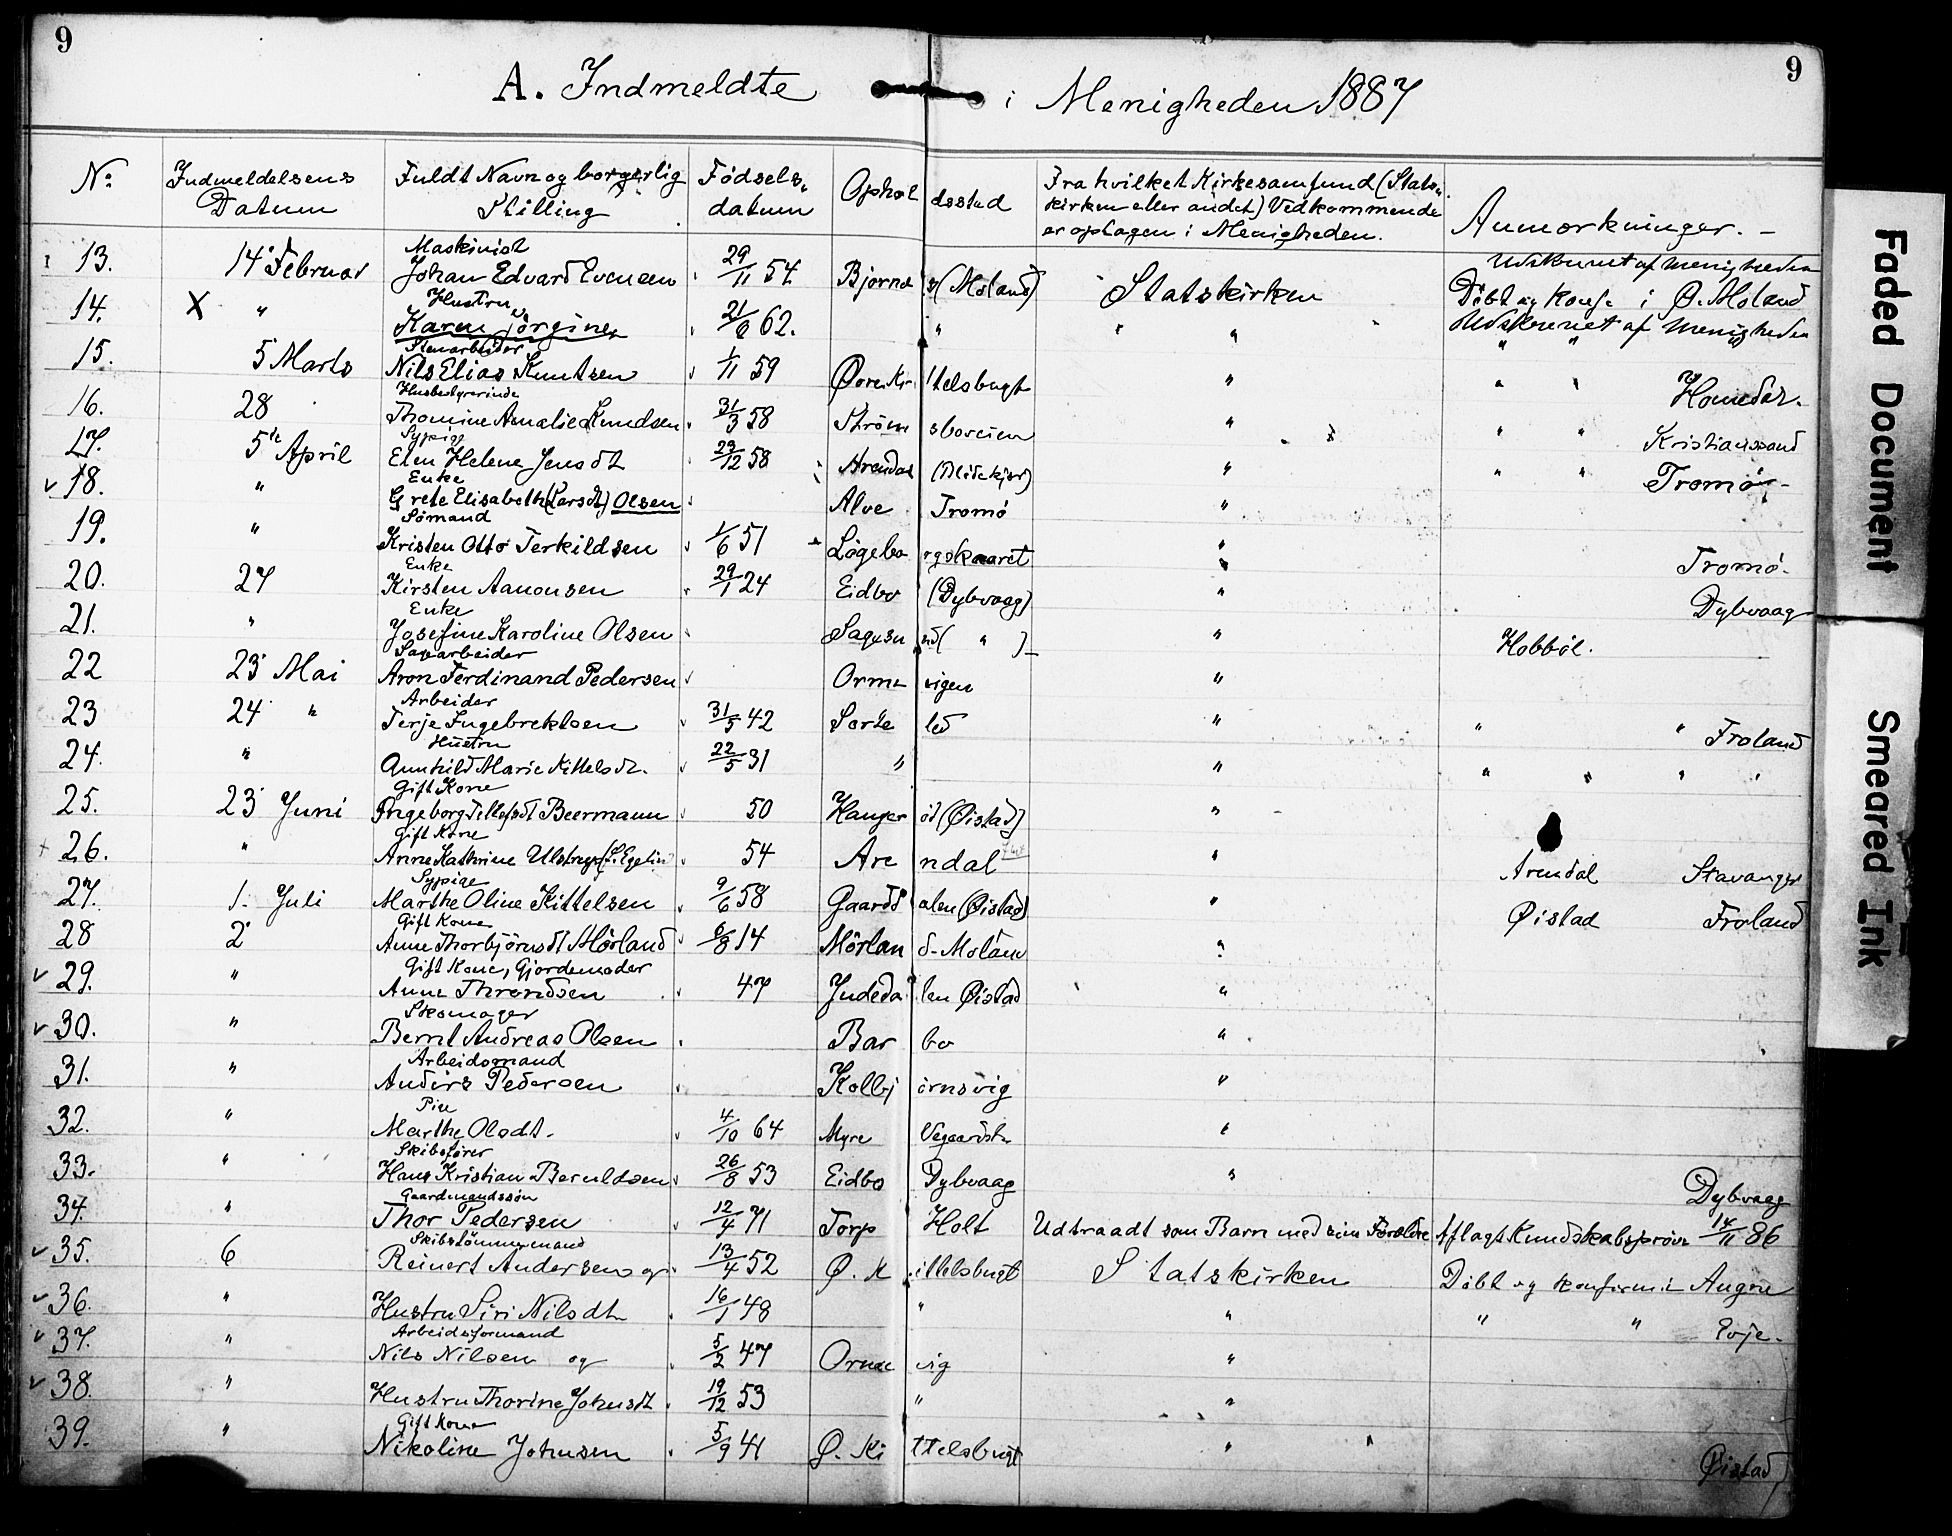 9
9
A. Indmeldte i Menigheden 1887
No. Indmeldelsens Datum Fuldt Navn og borgerlig Stilling Fødselsdatum Opholdsstad Fra hvilket Kirkesamfund (Statskirken eller andet) Vedkommende er optagen i Menigheden. Anmærkninger. -
Maskinist Udskrevet af menigheden
13. 14de Februar Johan Edvard Evensen 29/11 54 Bjornes (Moland) Statskirken Döbt og Konf. i Ø. Moland
Hustru Udskrevet af menigheden
14. X " Karen Jörgine 21/6 62. " " " "
Stenarbeider
15. 5 Marts Nils Elias Knutsen 1/11 59 Øvre Kittelsbugt " " " Homedal.
Husbestyrerinde
16. 28 Thomine Amalie Knudsen 31/3 58 Strömsboveien " " " Kristianssand
Sypige
17. 5te April Elen Helene Jensdt 23/12 58 Arendal (Blödekjær) " " " Tromö -
Enke
18. " Grete Elisabeth (Larsdt) Olsen Alve Tromö "
Sömand
19. " Kristen Otto Terkildsen 1/6 51 Lögeborgskaaret " Tromö.
Enke
20. 27 Kirsten Aanonsen 29/1 24 Eidbo (Dybvaag) " Dybvaag
Enke
21. " Josefine Karoline Olsen Sagesund ( " ) " Hobböl.
Sagarbeider
22 23 Mai Aron Ferdinand Pedersen Ormevigen "
Arbeider
23 24 " Terje Ingebrektsen 31/5 42 Sorteled " " " Froland
Hustru
24. " Gunhild Marie Kittelsdt. 22/5 31 " " " " " "
Gift Kone
25. 23 Juni Ingeborg Tellefsdt Beermann 50 Hauger öi (Øistad) "
Gift Kone
26. " Anne Kathrine Ulstrup 54 Arendal " Arendal Stavanger
Sypige
27. 1. Juli Marthe Oline Kittelsen 9/6 58 Gaarddalen (Øistad) " Øistad Froland
Gift Kone
28 2 Anne Thorbjörnsdt Mörland 6/8 14 Mörland - Moland "
Gift Kone, Gjordemoder
29. " Anne Throndsen 47 Indedalen Øistad "
Skomager
30. " Bernt Andreas Olsen Barbo "
Arbeidsmand
31. " Anders Pedersen Kolbjörnsvig "
Pige
32. " Marthe Olsdt. 4/10 64 Myre Vegaardsh. "
Skibsfører
33. " Hans Kristian Berntdsen 26/8 53 Eidbo Dybvaag " Dybvaag
Gaardmandssön
34. " Thor Pedersen 12/4 71 Torp Holt Udtraadt som Barn med sine Forældre Aflagt Kundskabsprøve 14/11 86
Skibstömmermand
35. 6 Reinert Andersen og 13/4 52 Ø. Kittelsbugt Statskirken Döbt og konfirm i Augre
36. " Hustru Siri Nilsdt 16/1 48 " " " " Evje.
Arbeidsformand
37. " Nils Nilsen og 5/2 47 Ormevig "
38. " Hustru Thorine Johnsdt 19/12 53 " "
Gift Kone
39. " Nikoline Johnsen 5/9 41 Ø. Kittelsbugt " Øistad
Faded Document
Smeared Ink